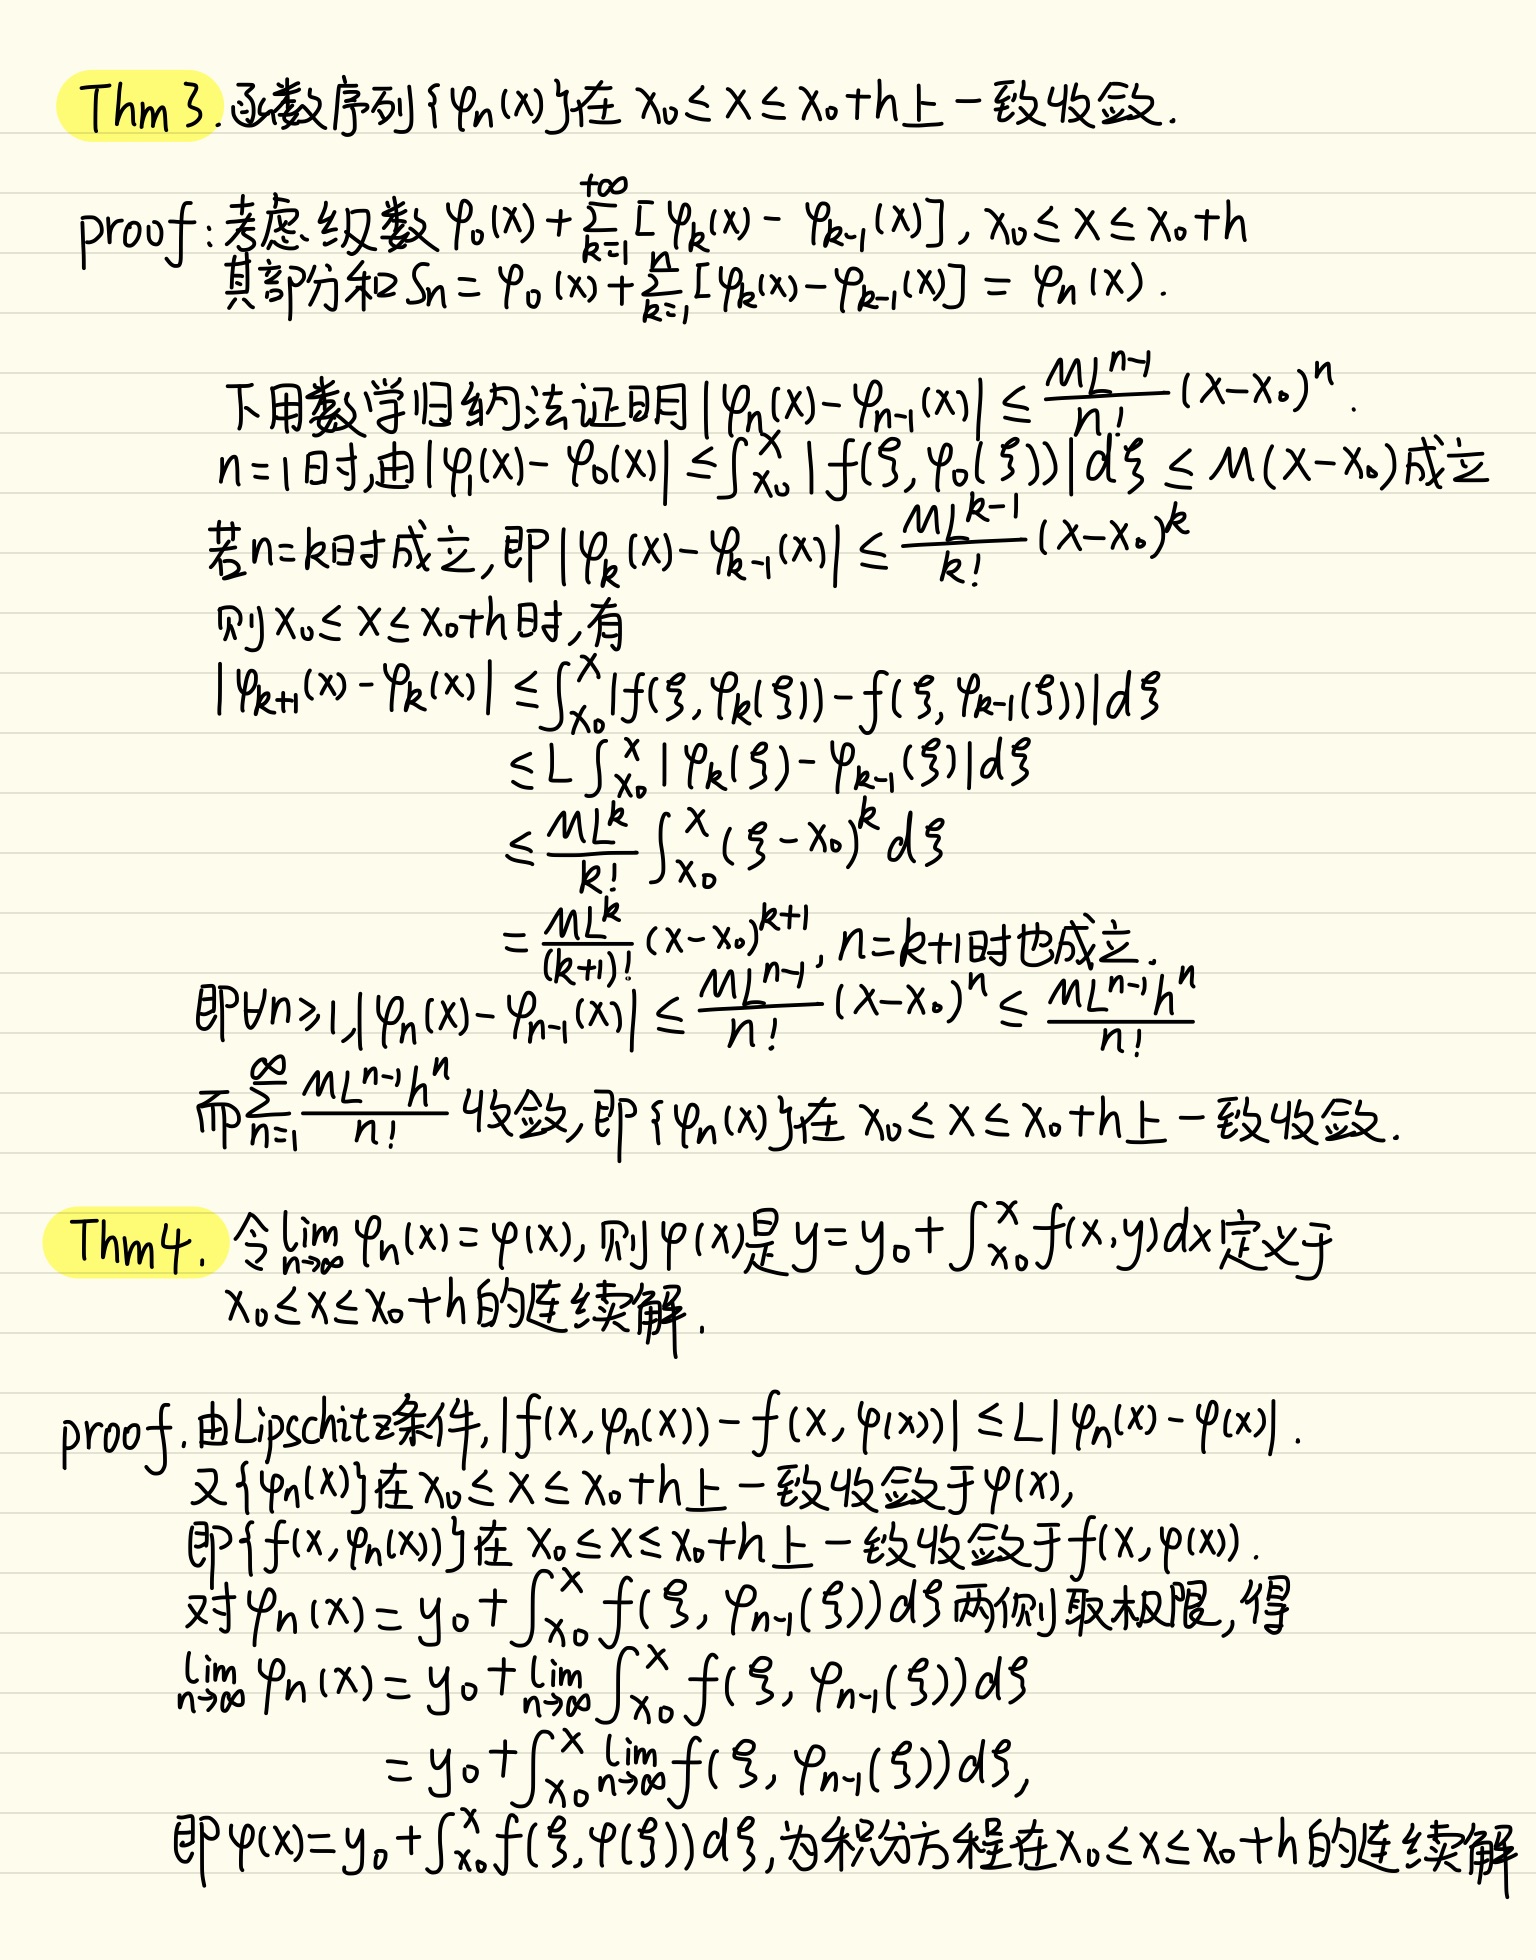 Thm 3. 函数序列{φₙ(x)}在 x₀ ≤ x ≤ x₀+h上一致收敛.
proof: 考虑级数 φ₀(x) + ∑_{k=1}^{+∞} [φ_k(x) - φ_{k-1}(x)], x₀ ≤ x ≤ x₀+h
其部分和 Sₙ = φ₀(x) + ∑_{k=1}^{n} [φ_k(x) - φ_{k-1}(x)] = φₙ(x).
下用数学归纳法证明 |φₙ(x) - φ_{n-1}(x)| ≤ \frac{ML^{n-1}}{n!} (x-x₀)^n.
n=1时,由|φ₁(x) - φ₀(x)| ≤ ∫_{x₀}^{x} |f(ξ, φ₀(ξ))| dξ ≤ M(x-x₀)成立
若n=k时成立,即|φ_k(x) - φ_{k-1}(x)| ≤ \frac{ML^{k-1}}{k!} (x-x₀)^k
则 x₀ ≤ x ≤ x₀+h 时,有
|φ_{k+1}(x) - φ_k(x)| ≤ ∫_{x₀}^{x} |f(ξ, φ_k(ξ)) - f(ξ, φ_{k-1}(ξ))| dξ
≤ L ∫_{x₀}^{x} |φ_k(ξ) - φ_{k-1}(ξ)| dξ
≤ \frac{ML^k}{k!} ∫_{x₀}^{x} (ξ-x₀)^k dξ
= \frac{ML^k}{(k+1)!} (x-x₀)^{k+1}, n=k+1时也成立.
即∀n≥1,|φₙ(x) - φ_{n-1}(x)| ≤ \frac{ML^{n-1}}{n!} (x-x₀)^n ≤ \frac{ML^{n-1}h^n}{n!}
而∑_{n=1}^{∞} \frac{ML^{n-1}h^n}{n!} 收敛,即{φₙ(x)}在 x₀ ≤ x ≤ x₀+h上一致收敛.
Thm4. 令 \lim_{n→∞} φₙ(x) = φ(x), 则φ(x)是 y = y₀ + ∫_{x₀}^{x} f(x,y)dx 定义于
x₀ ≤ x ≤ x₀+h的连续解.
proof. 由Lipschitz条件, |f(x, φₙ(x)) - f(x, φ(x))| ≤ L|φₙ(x) - φ(x)|.
又{φₙ(x)}在 x₀ ≤ x ≤ x₀+h上一致收敛于φ(x),
即{f(x, φₙ(x))}在 x₀ ≤ x ≤ x₀+h上一致收敛于f(x, φ(x)).
对 φₙ(x) = y₀ + ∫_{x₀}^{x} f(ξ, φ_{n-1}(ξ))dξ 两侧取极限,得
\lim_{n→∞} φₙ(x) = y₀ + \lim_{n→∞} ∫_{x₀}^{x} f(ξ, φ_{n-1}(ξ))dξ
= y₀ + ∫_{x₀}^{x} \lim_{n→∞} f(ξ, φ_{n-1}(ξ))dξ,
即 φ(x) = y₀ + ∫_{x₀}^{x} f(ξ, φ(ξ))dξ,为积分方程在 x₀ ≤ x ≤ x₀+h的连续解